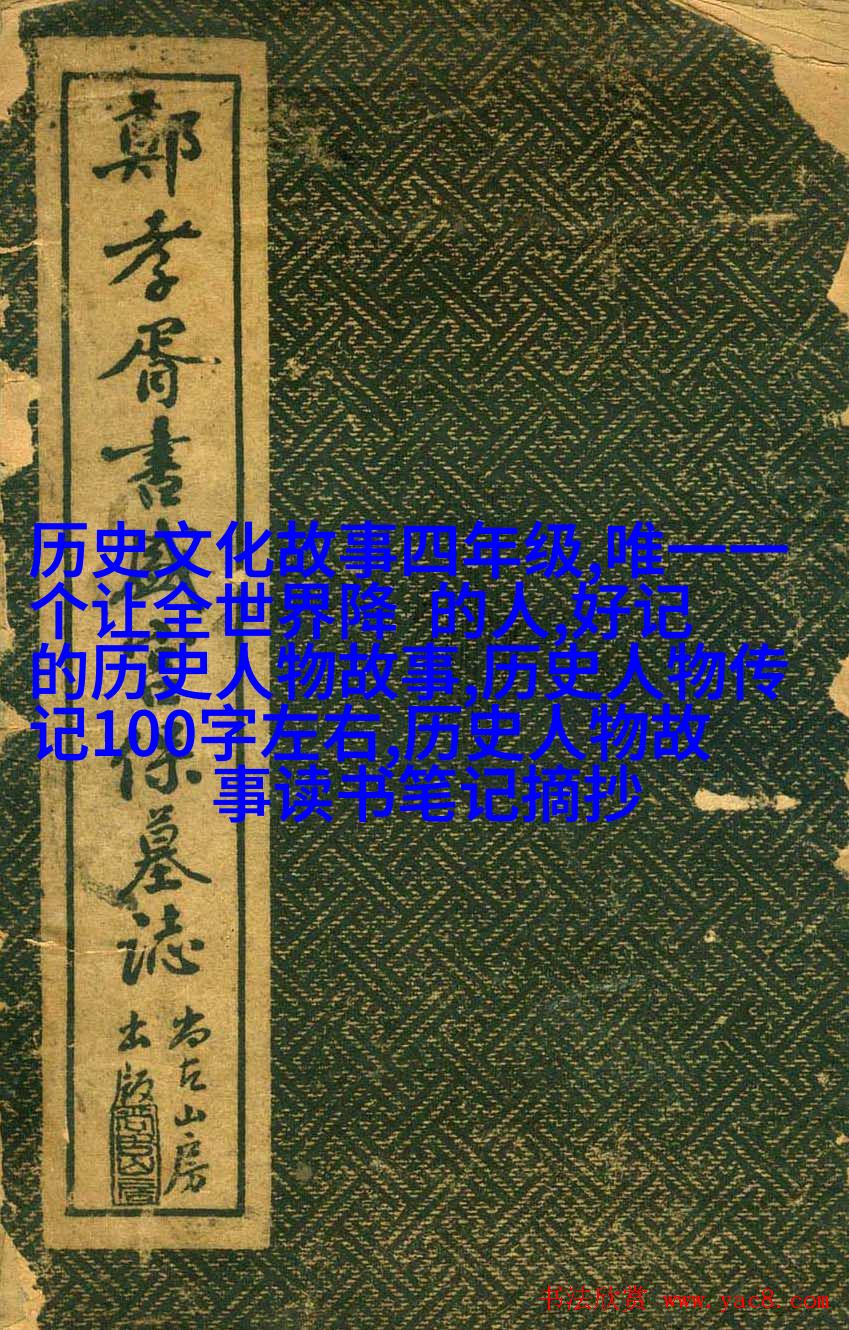 鄭孝胥書保墓誌
尚古山房
出版
历史文化故事四年级,唯一一
个让全世界降 的人,好记
的历史人物故事,历史人物传
记100字左右,历史人物故
事读书笔记摘抄
书法欣赏 www.yac8.com